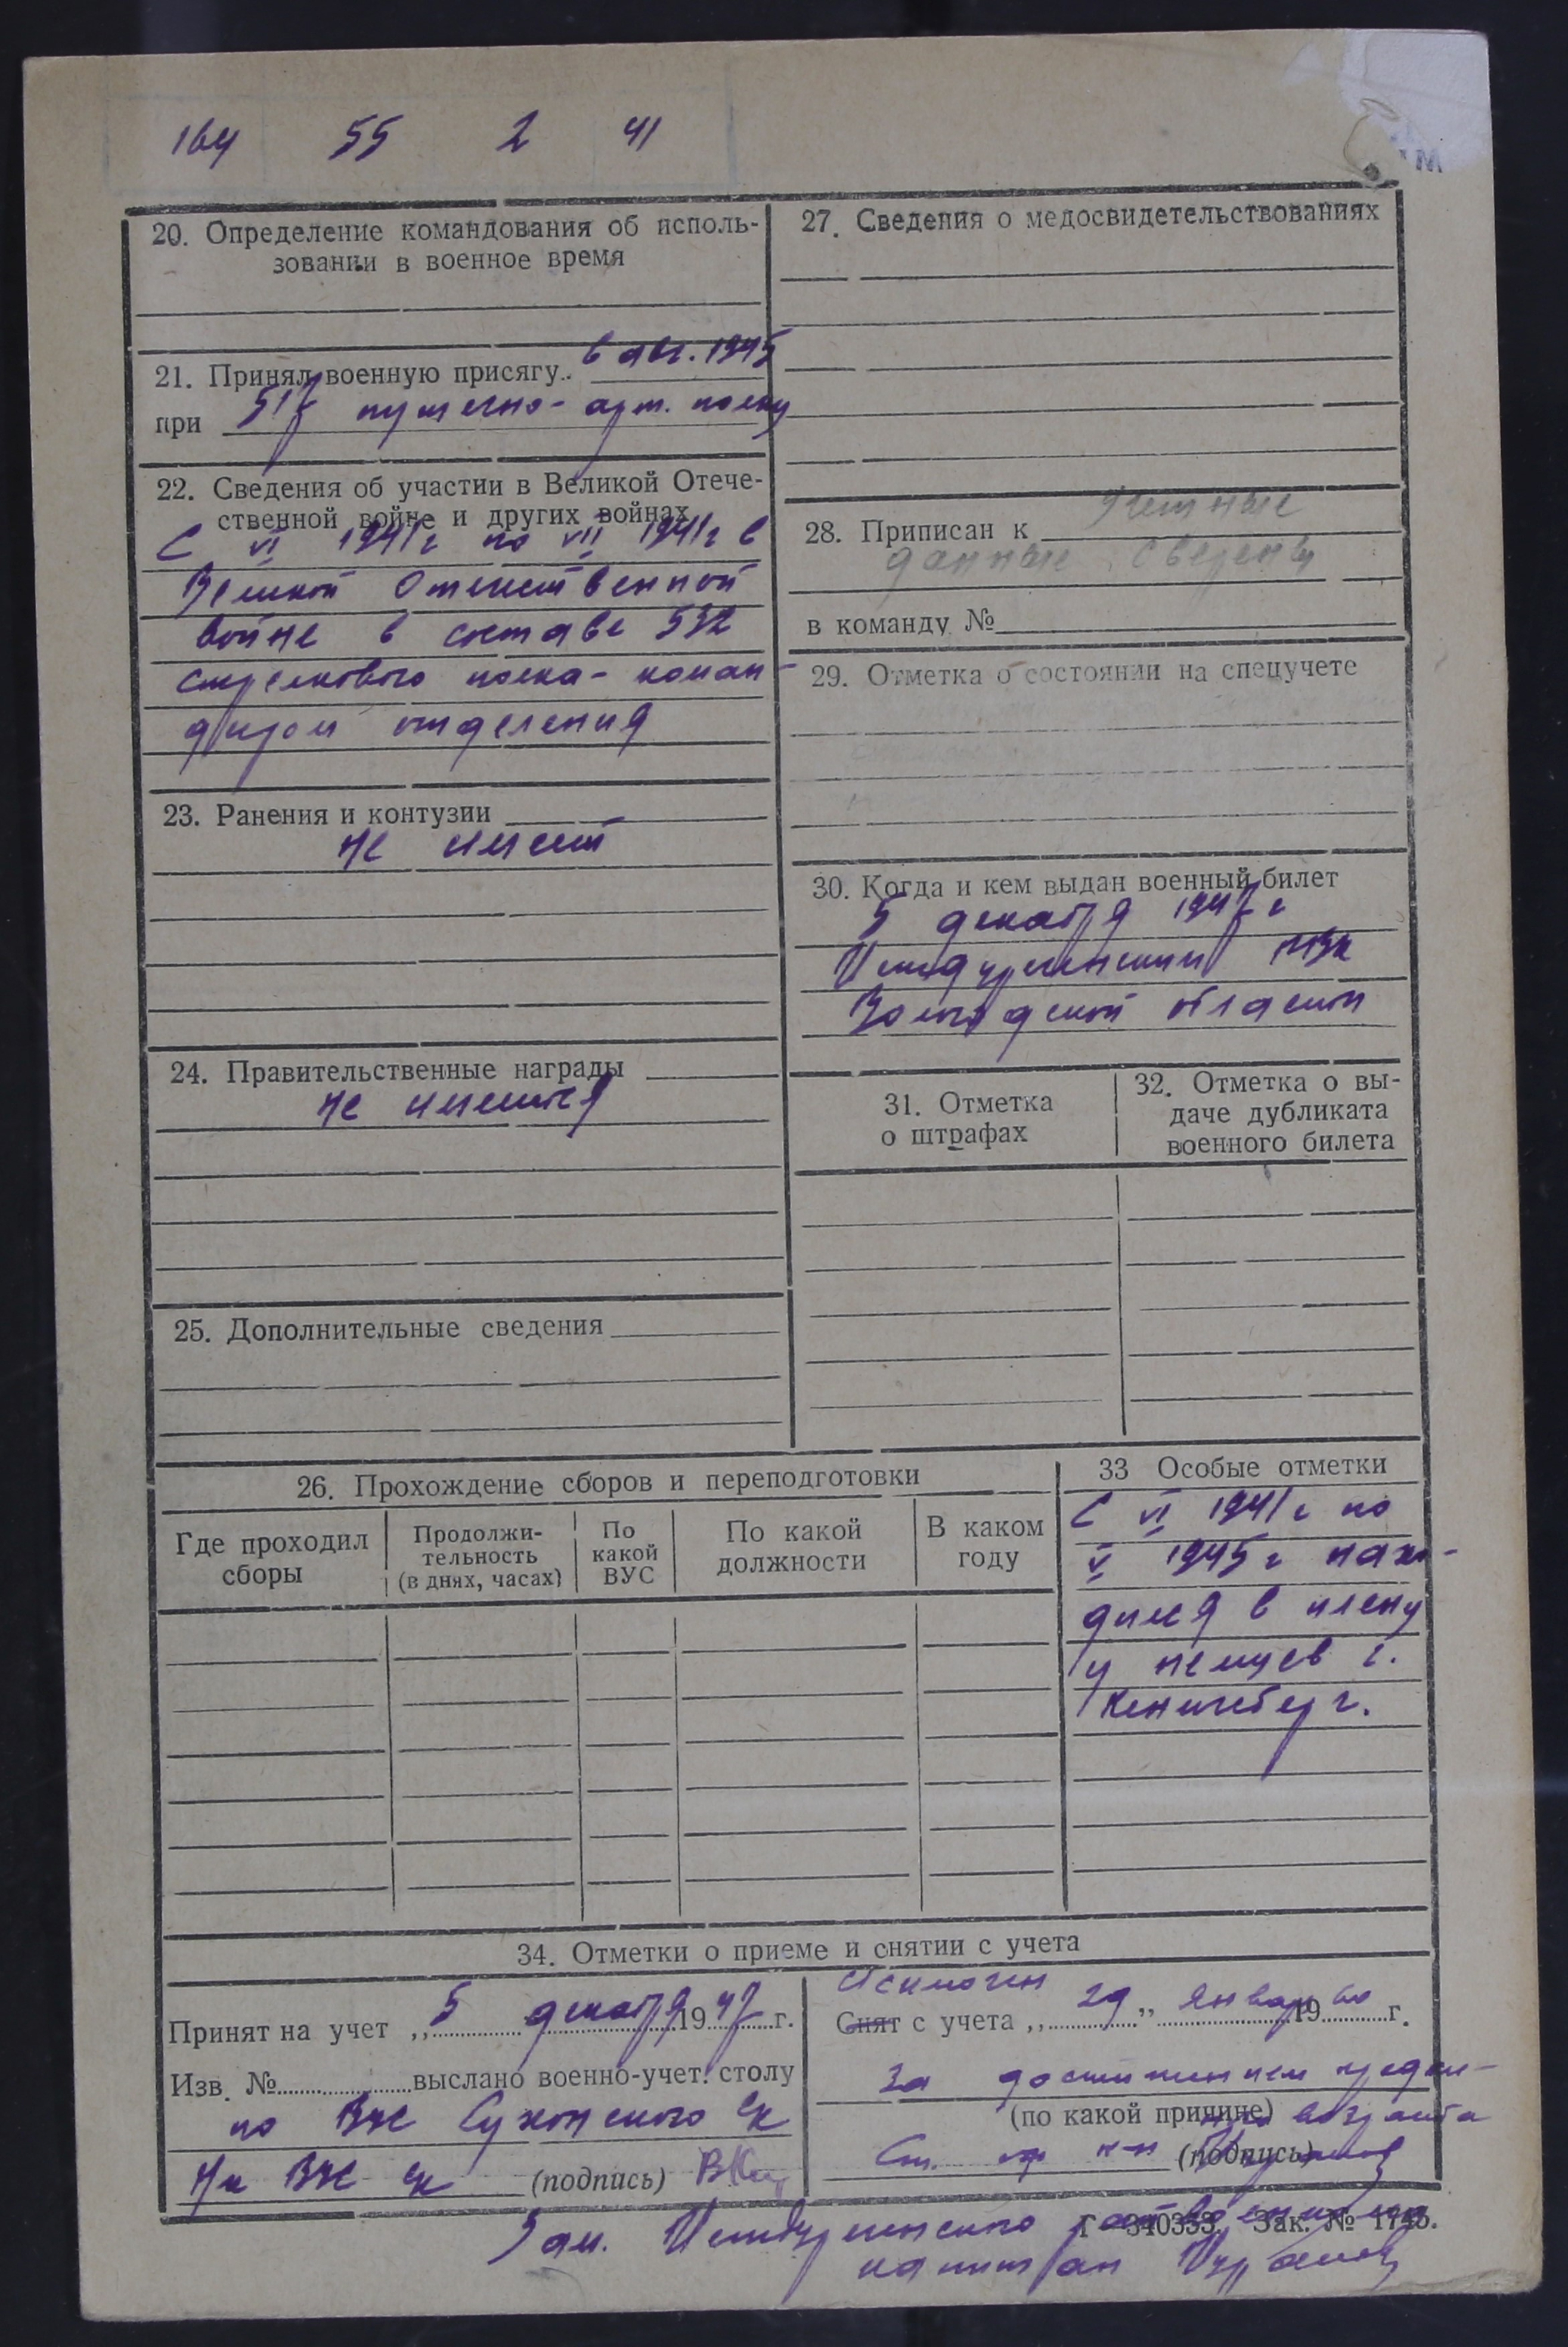 164 55 2 41
20. Определение командования об исполь-
зовании в военное время
21. Принял военную присягу.. 6 авг. 1945
при 517 пушечно-арт. полку
22. Сведения об участии в Великой Отече-
ственной войне и других войнах
С VI 1941 г по VII 1941 г в
Великой Отечественной
войне в составе 532
стрелкового полка - коман-
диром отделения
23. Ранения и контузии
не имеет
24. Правительственные награды
не имеются
25. Дополнительные сведения
27. Сведения о медосвидетельствованиях
28. Приписан к Учетные
данные сверены
в команду №
29. Отметка о состоянии на спецучете
30. Когда и кем выдан военный билет
5 декабря 1947 г
Междуреченским РВК
Вологодской области
31. Отметка
о штрафах
32. Отметка о вы-
даче дубликата
военного билета
26. Прохождение сборов и переподготовки
Где проходил
сборы
Продолжи-
тельность
(в днях, часах)
По
какой
ВУС
По какой
должности
В каком
году
33 Особые отметки
С VI 1941 г по
V 1945 г нахо-
дился в плену
у немцев г.
Кенигсберг.
34. Отметки о приеме и снятии с учета
Принят на учет „ 5 декабря 1947 г.
Изв. № выслано военно-учет. столу
по ВУС Сухонского ск
(подпись)
Исключен
Снят с учета „ 29 „ января 1960 г.
за достижением предель-
(по какой причине) ного возраста
Ст. оф к-н (подпись)
Зам. Междуреченского райвоенкома
Г-340353. Зак. № 1745.
капитан